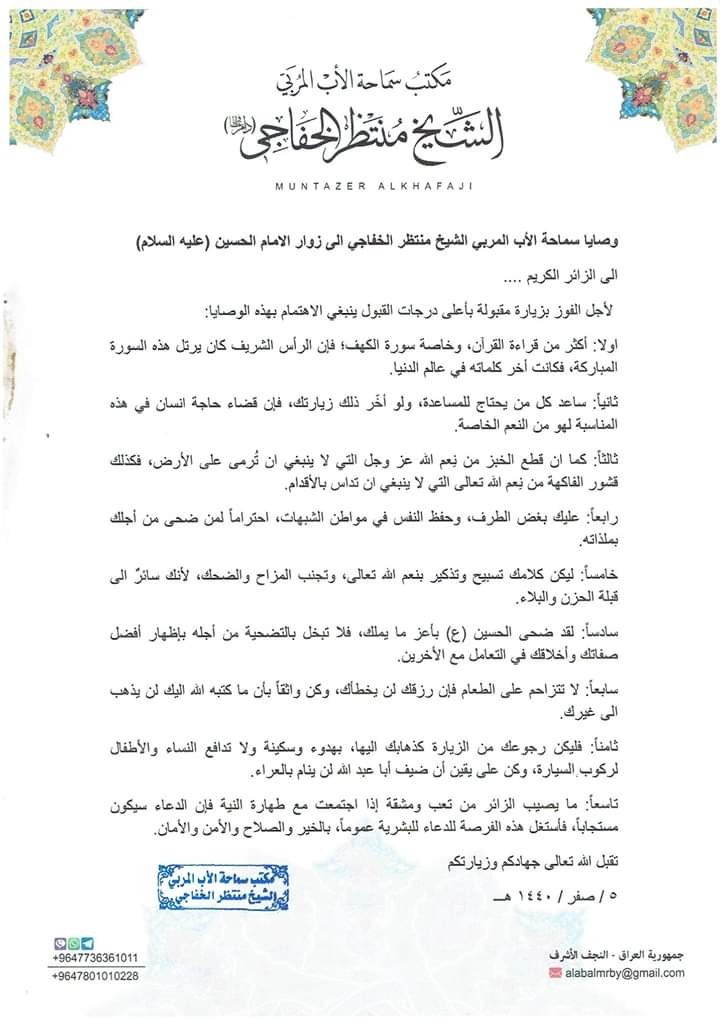 مكتب سماحة الأب المربي
الشيخ منتظر الخفاجي (دام عزه)
MUNTAZER ALKHAFAJI
وصايا سماحة الأب المربي الشيخ منتظر الخفاجي الى زوار الامام الحسين (عليه السلام)
الى الزائر الكريم ....
لأجل الفوز بزيارة مقبولة بأعلى درجات القبول ينبغي الاهتمام بهذه الوصايا:
اولا: أكثر من قراءة القرآن، وخاصة سورة الكهف؛ فإن الرأس الشريف كان يرتل هذه السورة
المباركة، فكانت أخر كلماته في عالم الدنيا.
ثانياً: ساعد كل من يحتاج للمساعدة، ولو أخّر ذلك زيارتك، فإن قضاء حاجة انسان في هذه
المناسبة لهو من النعم الخاصة.
ثالثاً: كما ان قطع الخبز من نِعم الله عز وجل التي لا ينبغي ان تُرمى على الأرض، فكذلك
قشور الفاكهة من نِعم الله تعالى التي لا ينبغي ان تداس بالأقدام.
رابعاً: عليك بغض الطرف، وحفظ النفس في مواطن الشبهات، احتراماً لمن ضحى من أجلك
بملذاته.
خامساً: ليكن كلامك تسبيح وتذكير بنعم الله تعالى، وتجنب المزاح والضحك، لأنك سائرٌ الى
قبلة الحزن والبلاء.
سادساً: لقد ضحى الحسين (ع) بأعز ما يملك، فلا تبخل بالتضحية من أجله بإظهار أفضل
صفاتك وأخلاقك في التعامل مع الأخرين.
سابعاً: لا تتزاحم على الطعام فإن رزقك لن يخطأك، وكن واثقاً بأن ما كتبه الله اليك لن يذهب
الى غيرك.
ثامناً: فليكن رجوعك من الزيارة كذهابك اليها، بهدوء وسكينة ولا تدافع النساء والأطفال
لركوب السيارة، وكن على يقين أن ضيف أبا عبد الله لن ينام بالعراء.
تاسعاً: ما يصيب الزائر من تعب ومشقة إذا اجتمعت مع طهارة النية فإن الدعاء سيكون
مستجاباً، فأستغل هذه الفرصة للدعاء للبشرية عموماً، بالخير والصلاح والأمن والأمان.
تقبل الله تعالى جهادكم وزيارتكم
٥ / صفر / ١٤٤٠ هــ
مكتب سماحة الأب المربي
الشيخ منتظر الخفاجي
جمهورية العراق - النجف الأشرف
alabalmrby@gmail.com
+9647736361011
+9647801010228